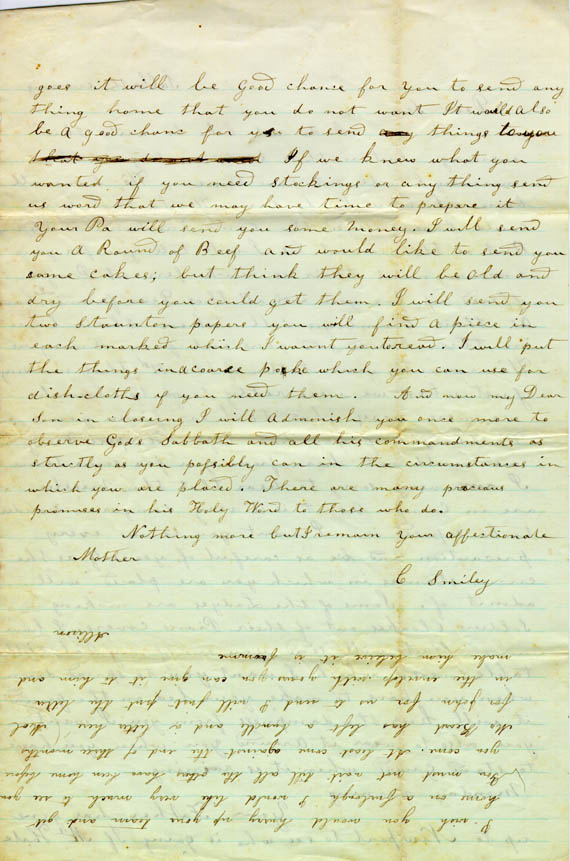 goes it will be good chance for you to send any
thing home that you do not want It would also
be a good chanc for us to send any things to you
that you do not need If we knew what you
wanted. if you need stockings or any thing send
us word that we may have time to prepare it
Your Pa will send you some money. I will send
you A Round of Beef and would like to send you
some cakes; but think they will be old and
dry before you could get them. I will send you
two Staunton papers you will find a piece in
each marked which I waunt you to read. I will put
the things in a coarse poke which you can use for
dish-cloths if you need them. And now my Dear
Son in closeing I will admonish you once more to
observe Gods Sabbath and all his commandments as
strictly as you possibly can in the circumstances in
which you are placed. There are many precious
promises in his Holy Word to those who do.
Nothing more but I remain Your affectionate
Mother
C Smiley
I wish you would hurry up your team and get
home on a furlough I would like very much to see you
You must not wait till all the others have been home before
you come. At least come against the end of three months
Mrs Beard has left a bundle and a letter here
for John for us to send I will just put the letter
in the envelop with yours you can give it to him and
make him believe it is